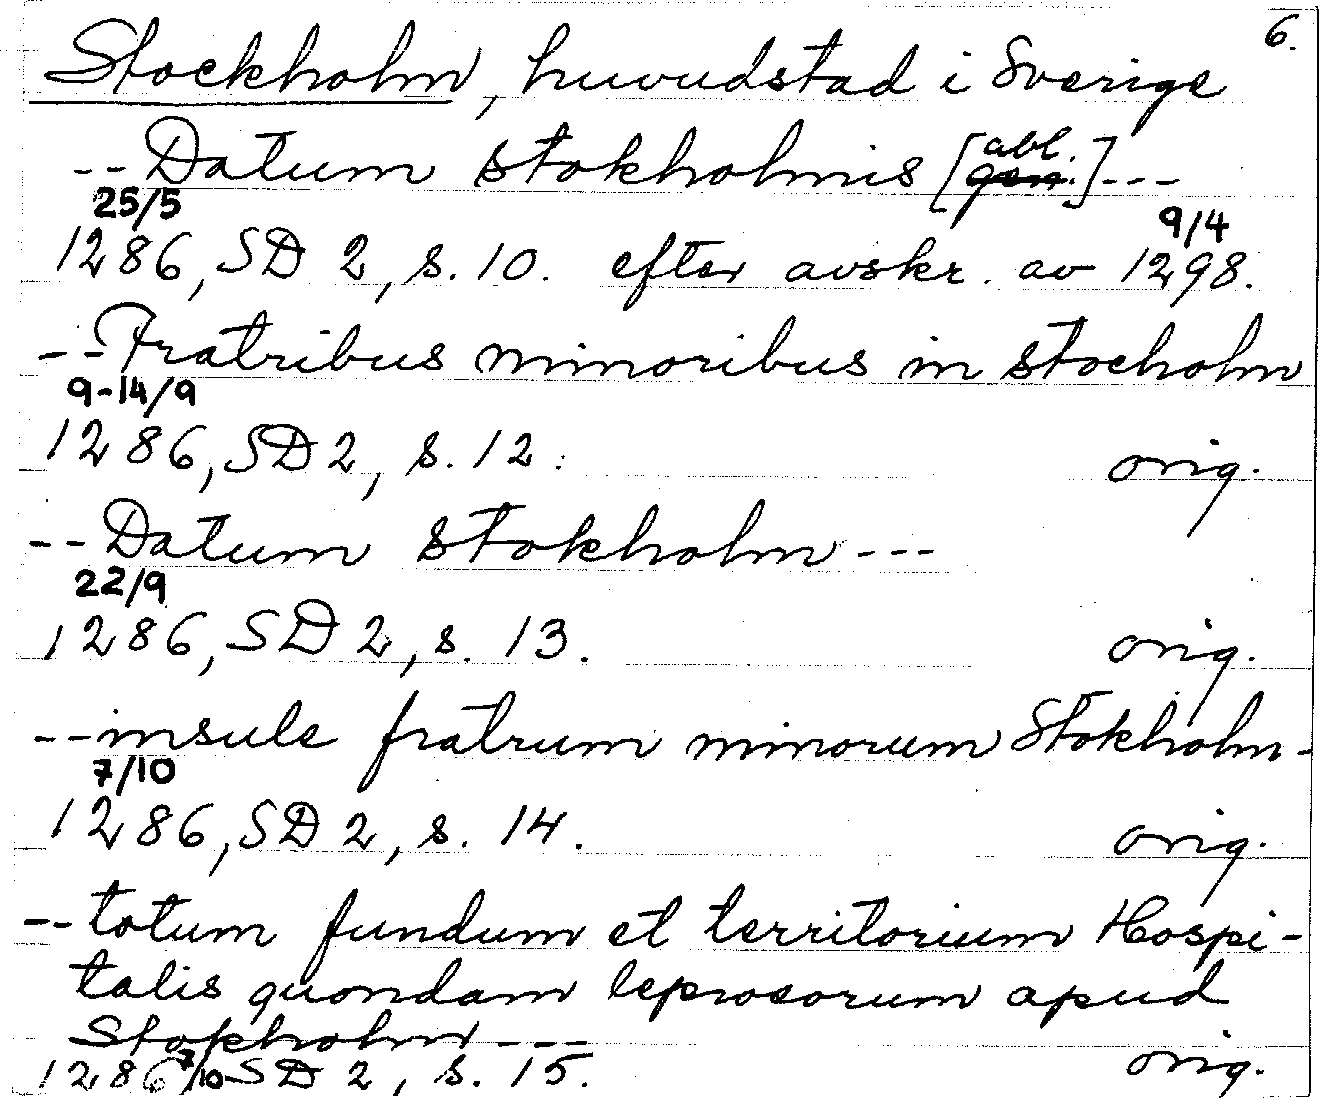 6.
Stockholm, huvudstad i Sverige
-- Datum stokholmis [abl. gen.] ---
25/5 9/4
1286, SD 2, s. 10. efter avskr. av 1298.
-- Fratribus minoribus in stocholm
9-14/9
1286, SD 2, s. 12. orig.
-- Datum stokholm ---
22/9
1286, SD 2, s. 13. orig.
-- insule fratrum minorum Stokholm-
7/10
1286, SD 2, s. 14. orig.
-- totum fundum et territorium Hospi-
talis quondam leprosorum apud
Stokholm ---
1286 7/10 SD 2, s. 15. orig.